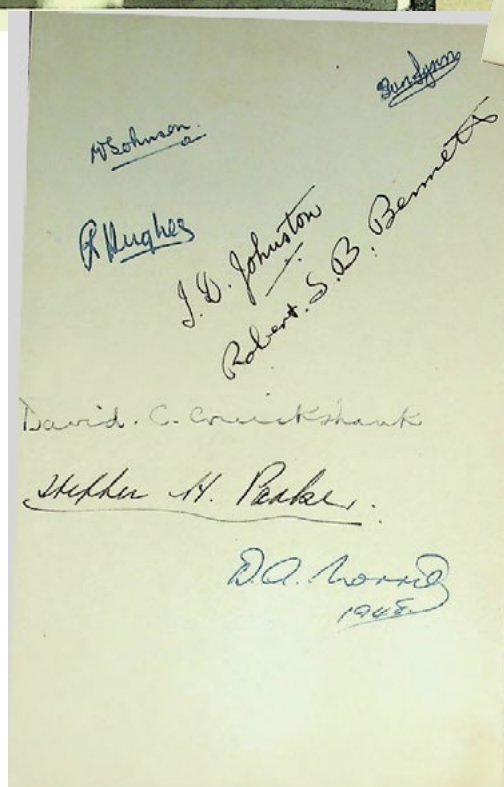 Johnson
R Hughes
J. D. Johnston
Robert. S. B. Bennett
David. C. Cruickshank
Stephen H. Parker.
D. A. Norris
1948